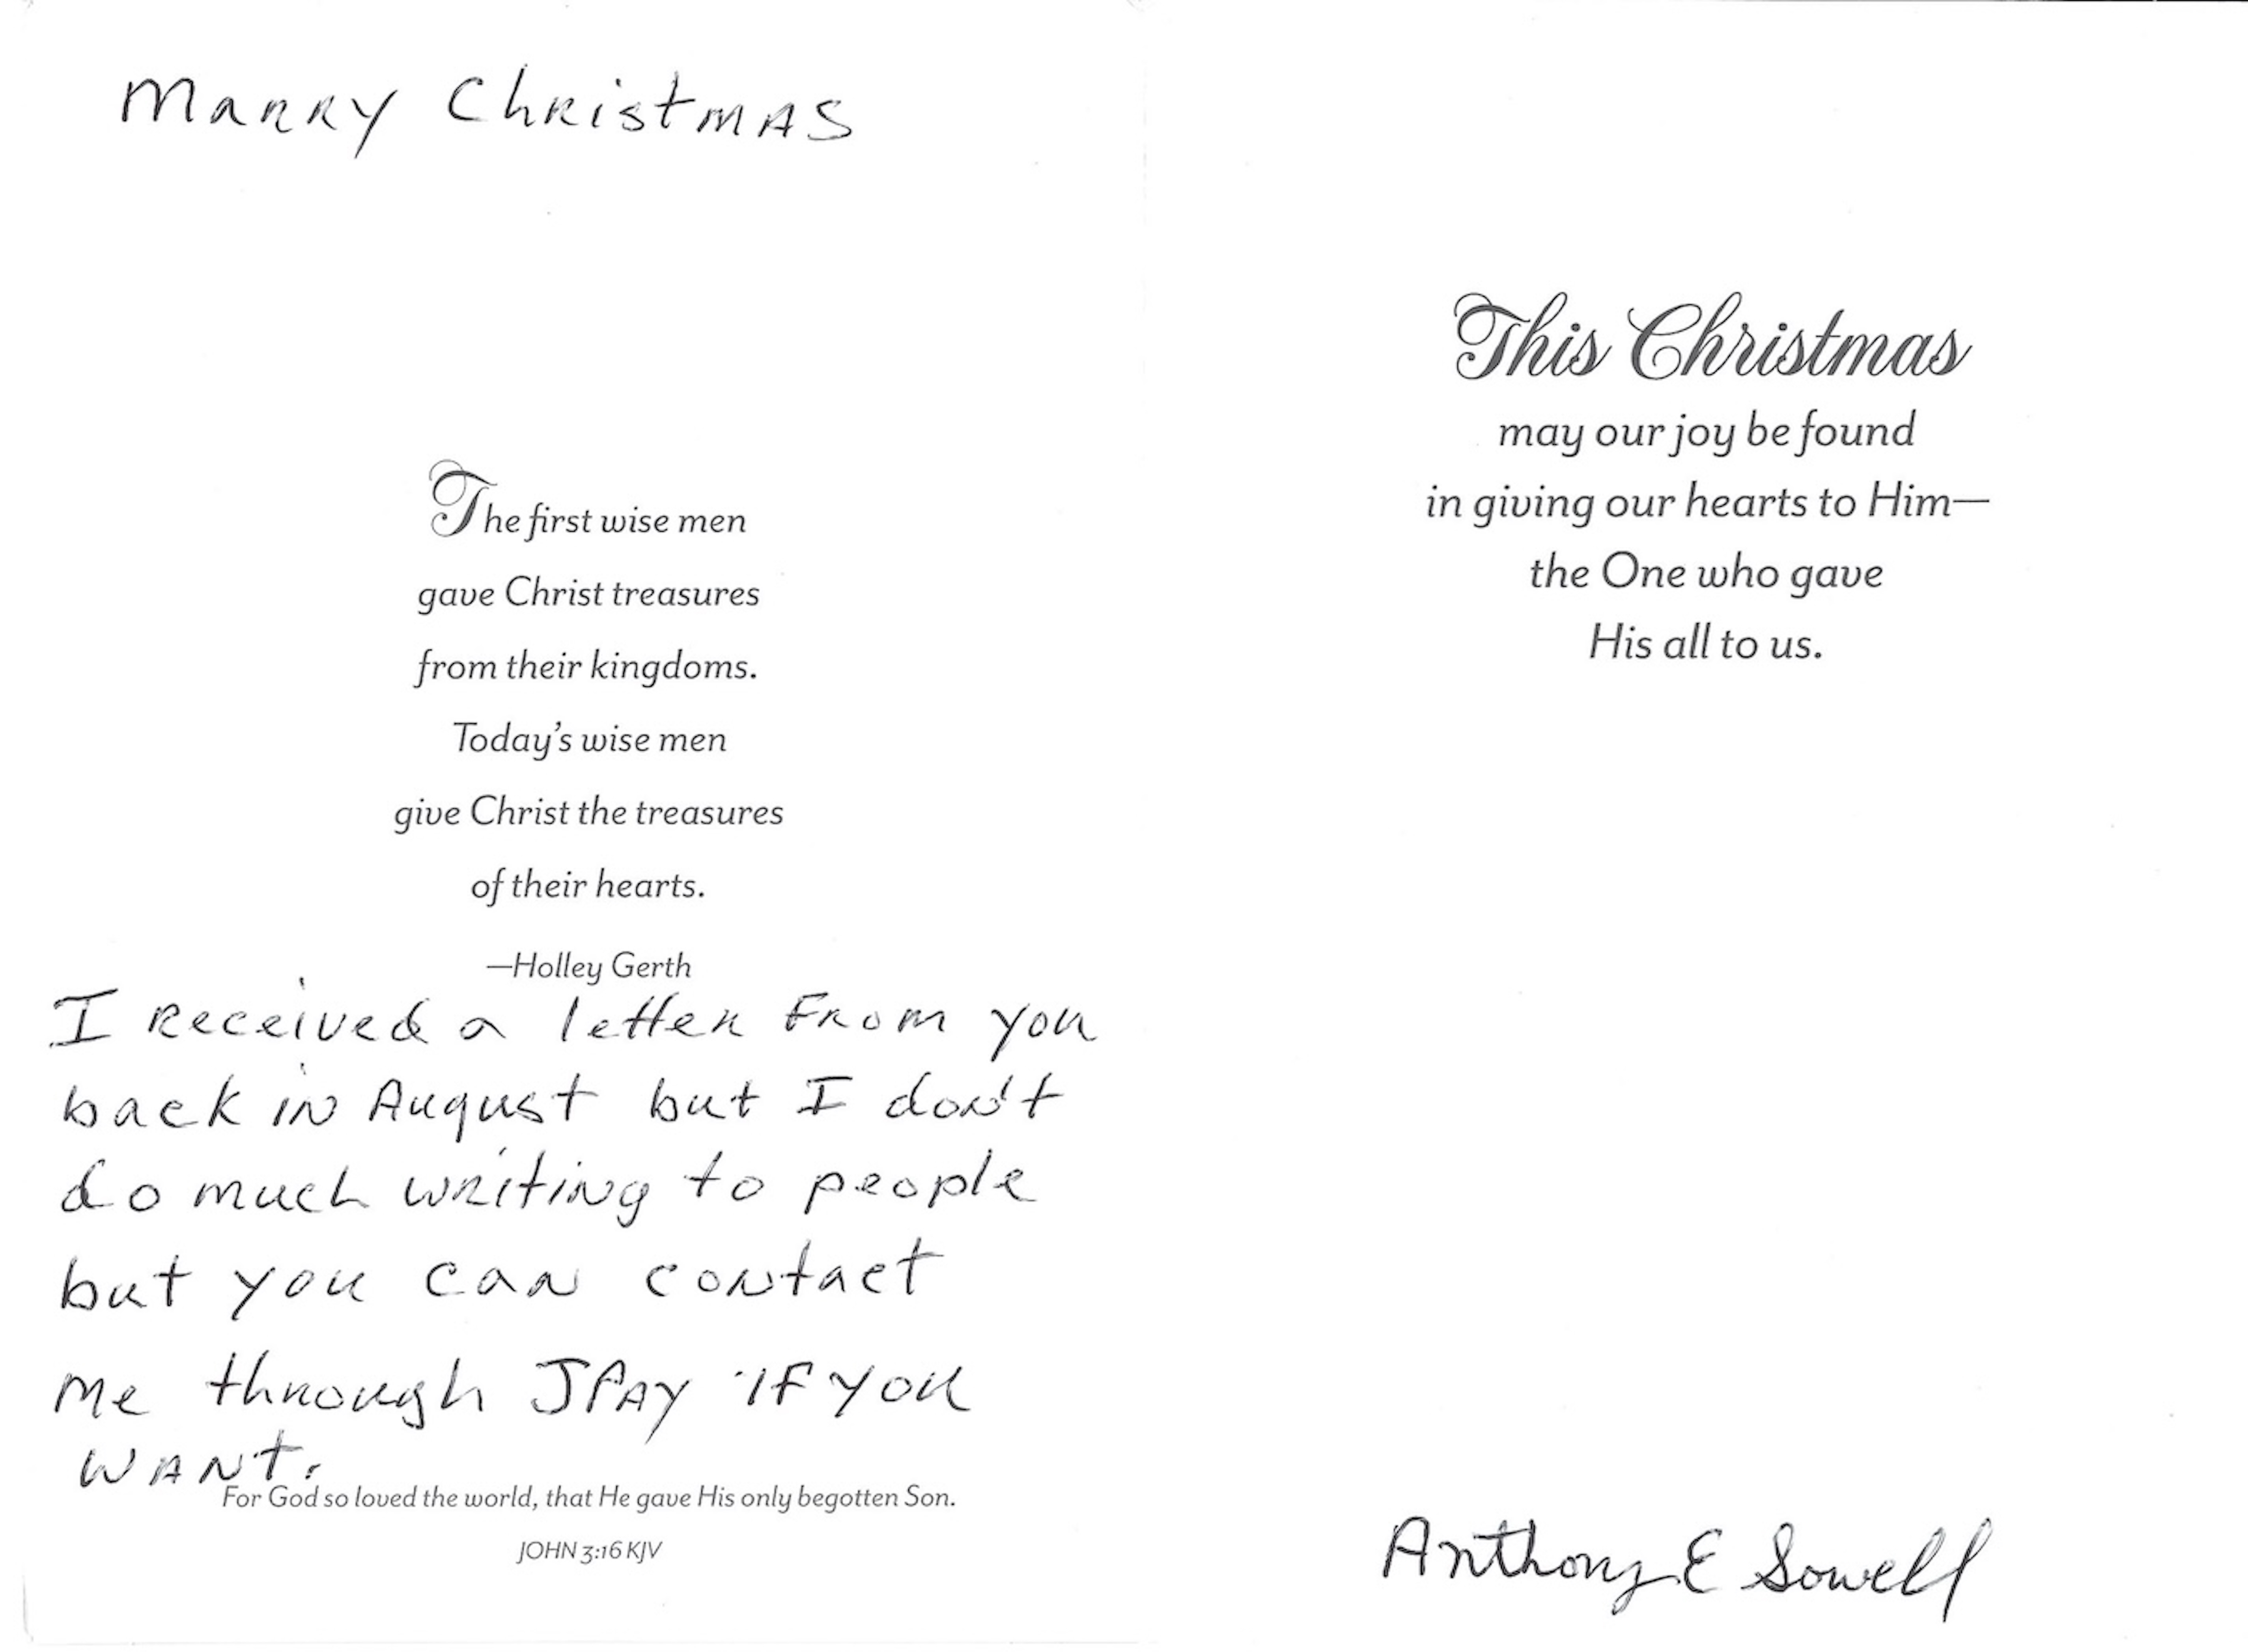 Marry Christmas
The first wise men
gave Christ treasures
from their kingdoms.
Today's wise men
give Christ the treasures
of their hearts.
—Holley Gerth
I Received a letter From you
back in August but I don't
do much writing to people
but you can contact
me through JPAY if you
WANT.
For God so loved the world, that He gave His only begotten Son.
JOHN 3:16 KJV
This Christmas
may our joy be found
in giving our hearts to Him—
the One who gave
His all to us.
Anthony E Sowell